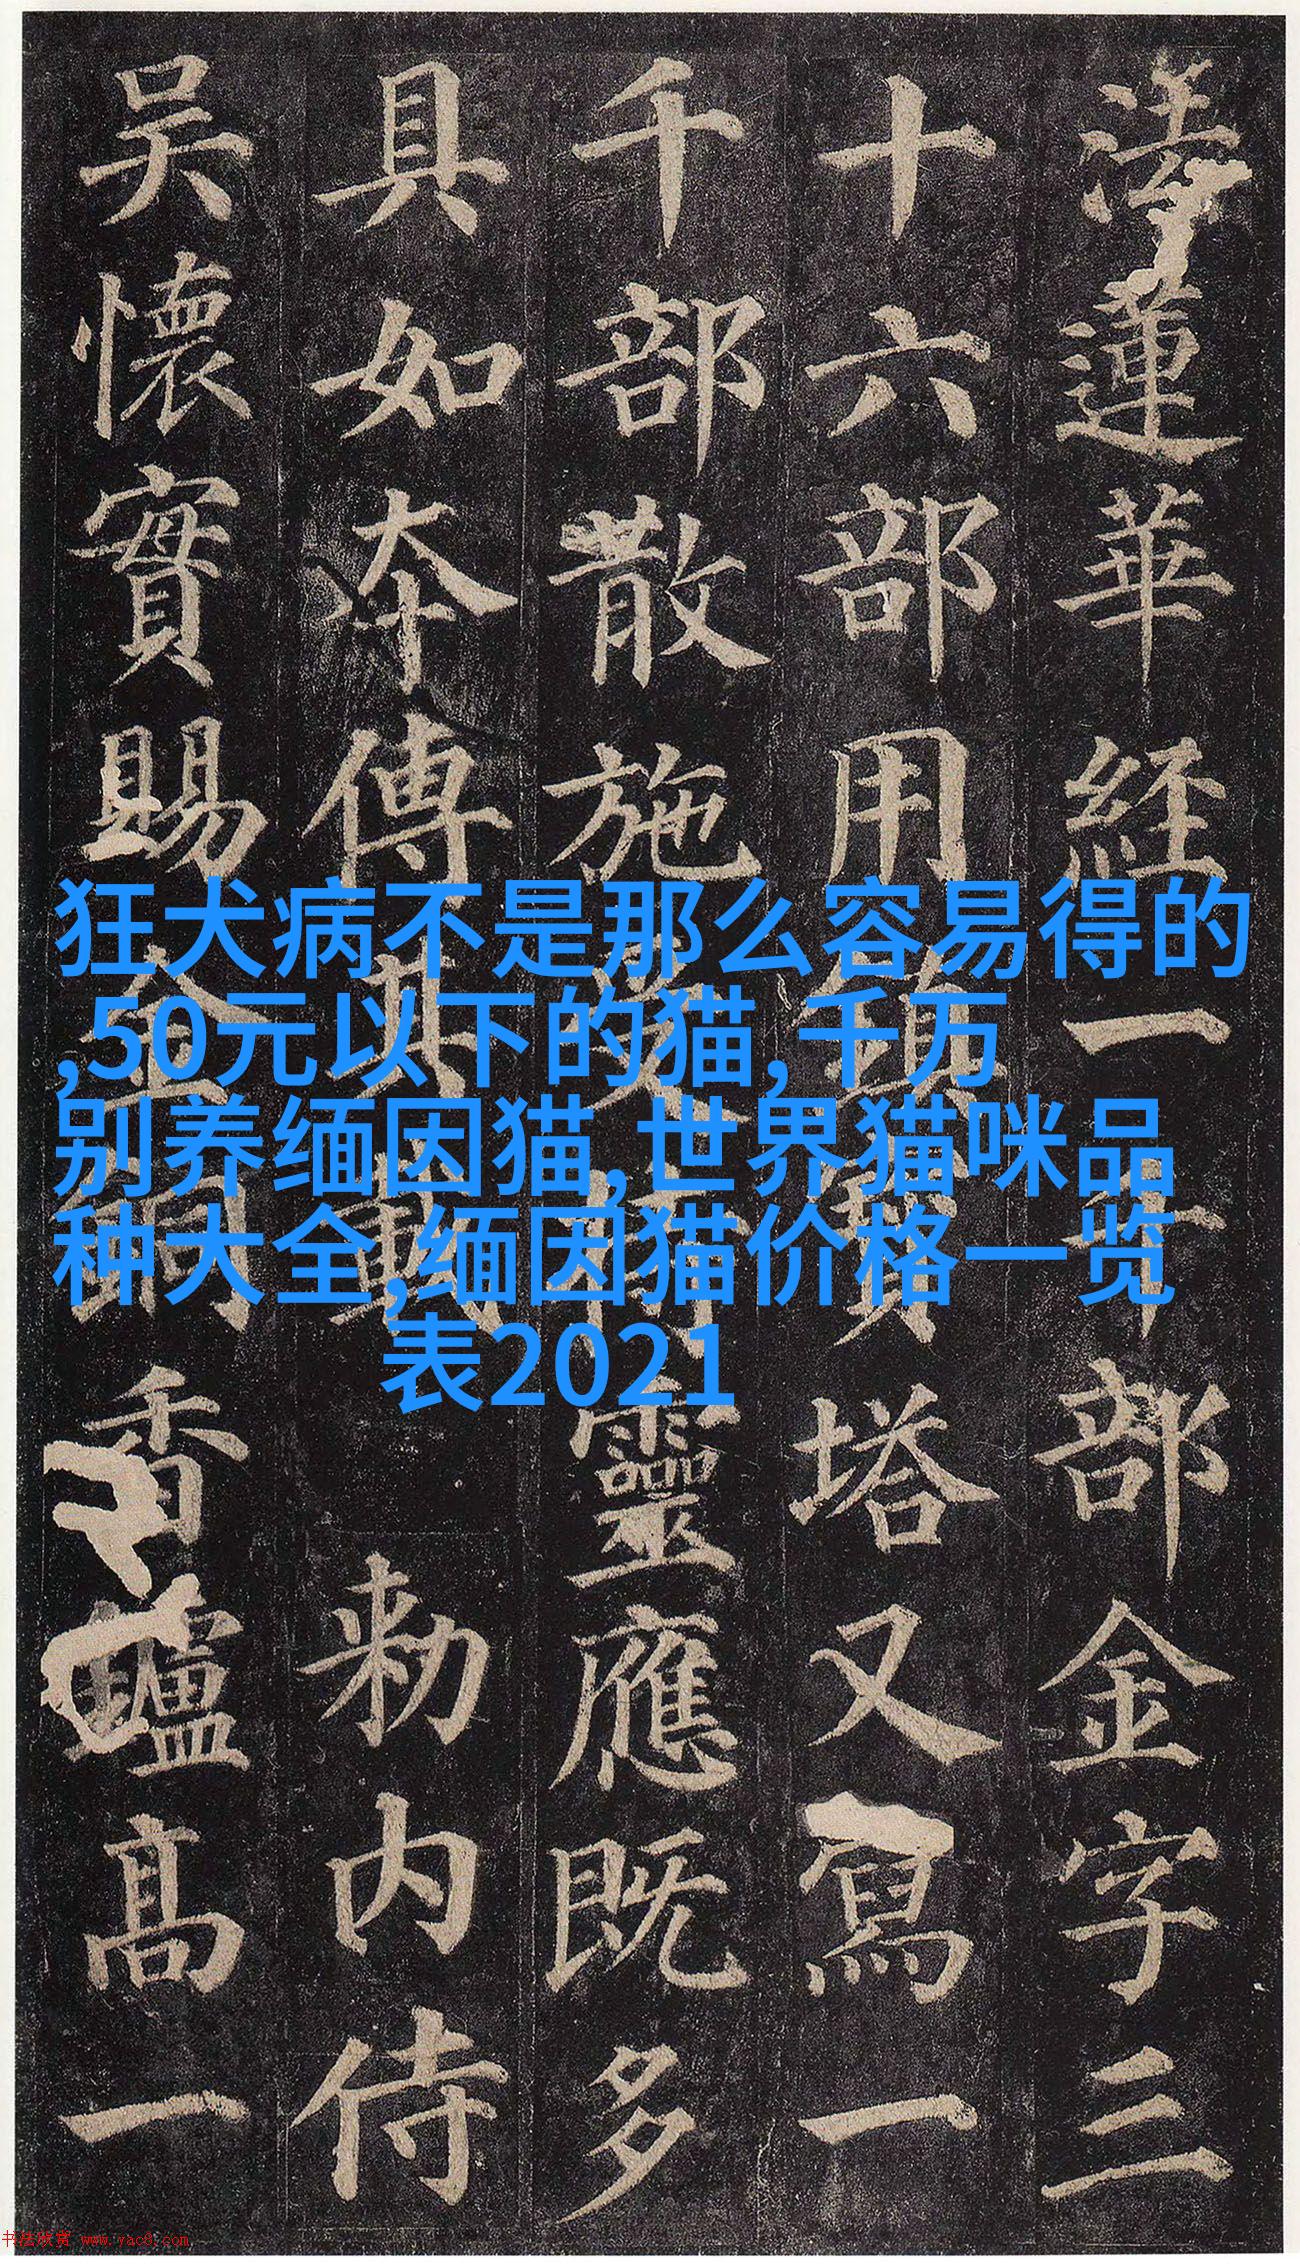 法蓮華經一千部金字三
十六部用鎮寶塔又寫一
千部散施受持靈應既多
具如夲傳其載勑內侍
吳懷實賜金銅香鑪高一
狂犬病不是那么容易得的
,50元以下的猫,千万
别养缅因猫,世界猫咪品
种大全,缅因猫价格一览
表2021
书法欣赏 www.yac8.com